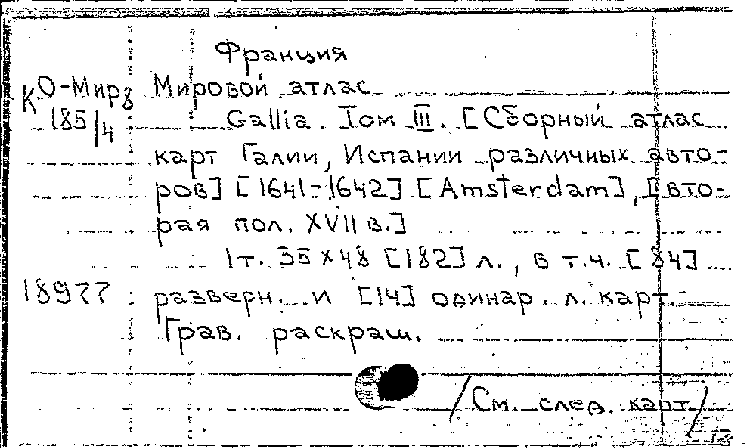 Франция
К О-Мир 8 Мировой атлас
185/4 Gallia. Том III. [Сборный атлас
карт Галии, Испании различных авто-
ров] [1641-1642] [Amsterdam], [вто-
рая пол. XVII в.]
1т. 35×48 [182] л., в т.ч. [84]
18977 разверн. и [14] одинар. л. карт.
Грав. раскраш.
/См. след. карт/